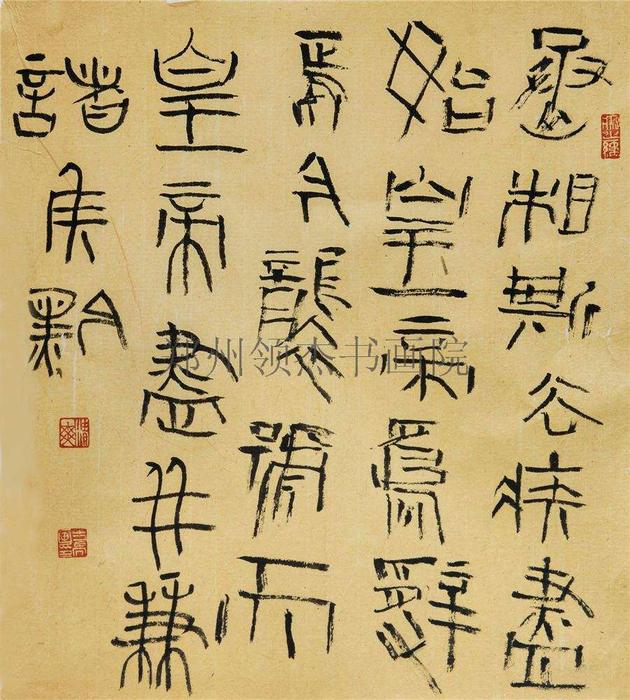 丞相斯去疾盡
始皇帝爲辭
焉今襲號而
皇帝盡并兼
諸侯黔
郑州领杰书画院